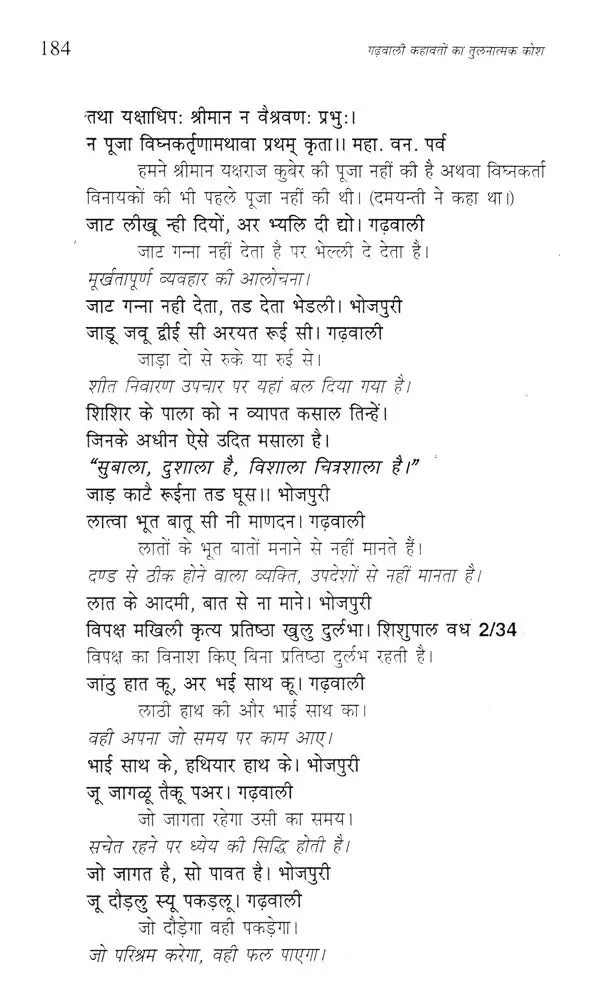 184
गढ़वाली कहावतों का तुलनात्मक कोश
तथा यक्षाधिपः श्रीमान न वैश्रवणः प्रभुः।
न पूजा विघ्नकर्तृणामथावा प्रथम् कृता।। महा. वन. पर्व
हमने श्रीमान यक्षराज कुबेर की पूजा नहीं की है अथवा विघ्नकर्ता
विनायकों की भी पहले पूजा नहीं की थी। (दमयन्ती ने कहा था।)
जाट लीखू न्ही दियों, अर भ्यलि दी द्यो। गढ़वाली
जाट गन्ना नहीं देता है पर भेल्ली दे देता है।
मूर्खतापूर्ण व्यवहार की आलोचना।
जाट गन्ना नही देता, तड देता भेडली। भोजपुरी
जाडू जवू द्वीई सी अरयत रूई सी। गढ़वाली
जाडा दो से रुके या रुई से।
शीत निवारण उपचार पर यहां बल दिया गया है।
शिशिर के पाला को न व्यापत कसाल तिन्हें।
जिनके अधीन ऐसे उदित मसाला है।
“सुबाला, दुशाला है, विशाला चित्रशाला है।”
जाड़ काटै रूईना तड घूस।। भोजपुरी
लात्वा भूत बातू सी नी माणदन। गढ़वाली
लातों के भूत बातों मनाने से नहीं मानते हैं।
दण्ड से ठीक होने वाला व्यक्ति, उपदेशों से नहीं मानता है।
लात के आदमी, बात से ना माने। भोजपुरी
विपक्ष मखिली कृत्य प्रतिष्ठा खुलु दुर्लभा। शिशुपाल वध 2/34
विपक्ष का विनाश किए बिना प्रतिष्ठा दुर्लभ रहती है।
जांठु हात कू, अर भई साथ कू। गढ़वाली
लाठी हाथ की और भाई साथ का।
वही अपना जो समय पर काम आए।
भाई साथ के, हथियार हाथ के। भोजपुरी
जू जागळू तैकू पअर। गढ़वाली
जो जागता रहेगा उसी का समय।
सचेत रहने पर ध्येय की सिद्धि होती है।
जो जागत है, सो पावत है। भोजपुरी
जू दौड़लु स्यू पकड़लू। गढ़वाली
जो दौड़ेगा वही पकड़ेगा।
जो परिश्रम करेगा, वही फल पाएगा।